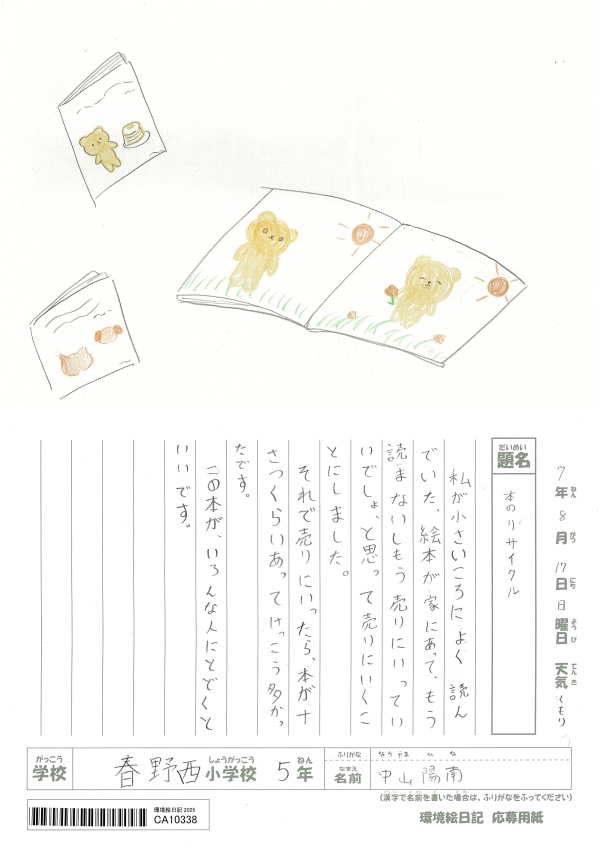 7年ねん 8月がつ 17日にち 日曜日ようび 天気てんき くもり
題名だいめい 本のリサイクル
私が小さいころによく読ん
でいた、絵本が家にあって、もう
読まないしもう売りにいってい
いでしょ、と思って売りにいくこ
とにしました。
それで売りにいったら、本が十
さつくらいあってけっこう多かっ
たです。
この本が、いろんな人にとどくと
いいです。
がっこう 学校 春野西 しょうがっこう 小学校 5 ねん 年
ふりがな なかやま ひな
なまえ 名前 中山陽南
(漢字で名前を書いた場合は、ふりがなをふってください)
環境絵日記 2025
CA10338
環境絵日記 応募用紙